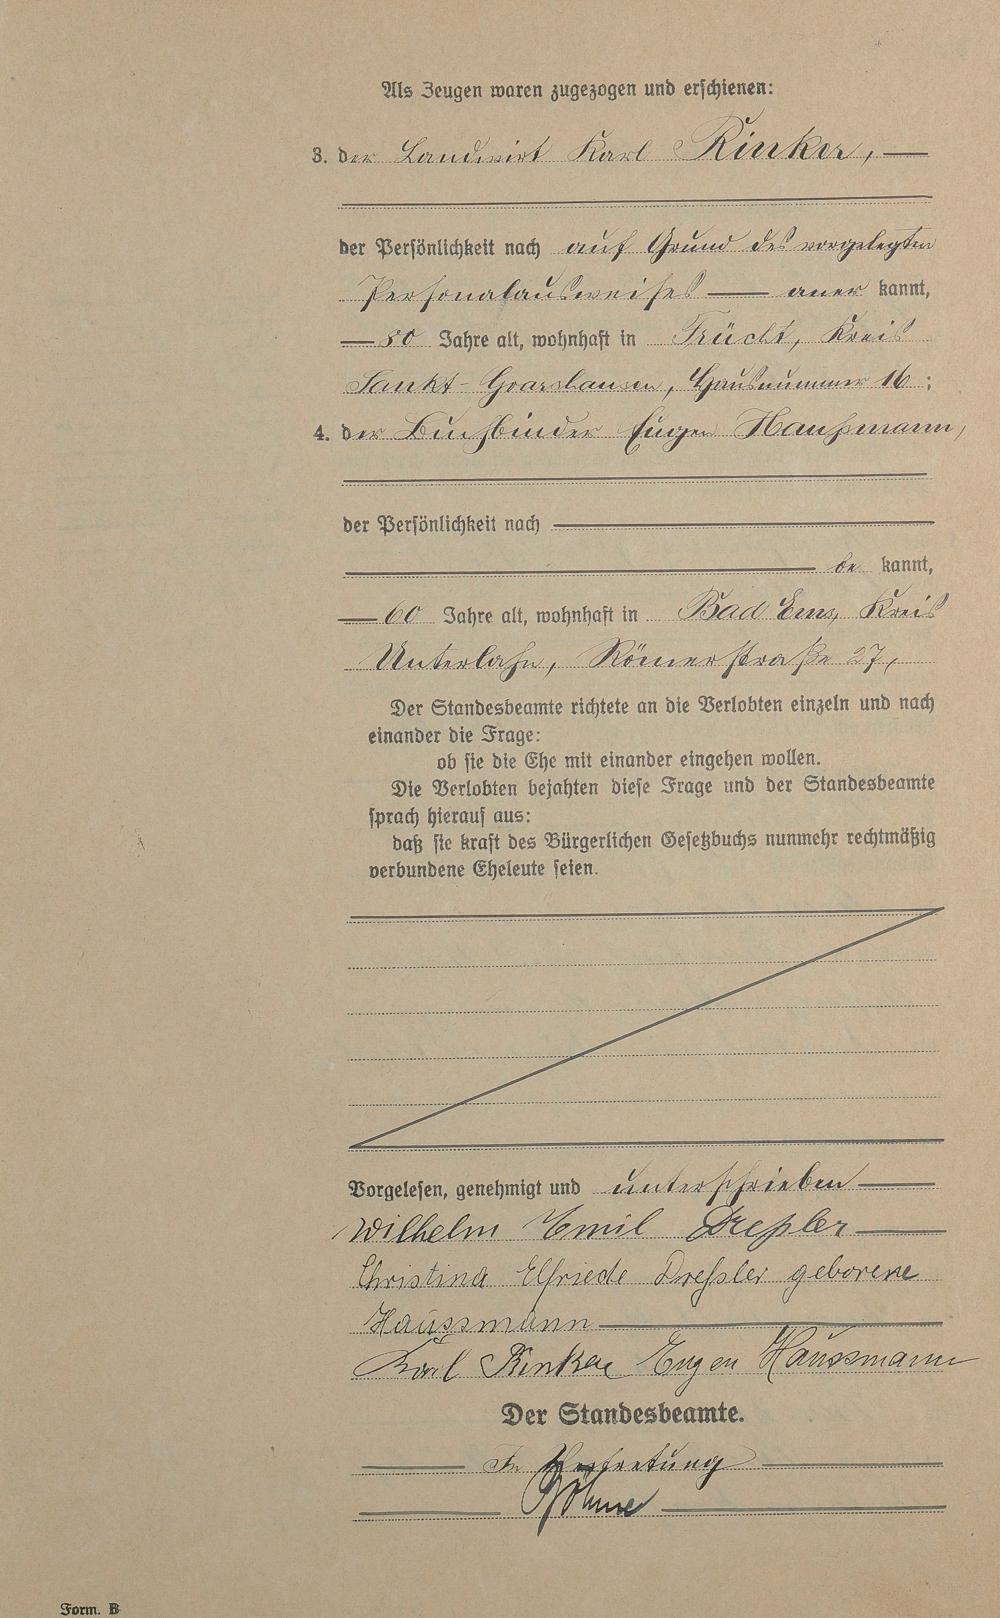 Als Zeugen waren zugezogen und erschienen:
3. der Landwirt Karl Rinker,
der Persönlichkeit nach auf Grund des vorgelegten
Personalausweises — aner kannt,
50 Jahre alt, wohnhaft in Frücht, Kreis
Sankt-Goarshausen, Hausnummer 16;
4. der Buchbinder Eugen Haußmann,
der Persönlichkeit nach
be kannt,
60 Jahre alt, wohnhaft in Bad Ems, Kreis
Unterlahn, Römerstraße 27,
Der Standesbeamte richtete an die Verlobten einzeln und nach
einander die Frage:
ob sie die Ehe mit einander eingehen wollen.
Die Verlobten bejahten diese Frage und der Standesbeamte
sprach hierauf aus:
daß sie kraft des Bürgerlichen Gesetzbuchs nunmehr rechtmäßig
verbundene Eheleute seien.
Vorgelesen, genehmigt und unterschrieben
Wilhelm Emil Dreßler
Christina Elfriede Dreßler geborene
Haussmann
Karl Rinker Eugen Haussmann
Der Standesbeamte.
In Vertretung
Böhme
Form. B